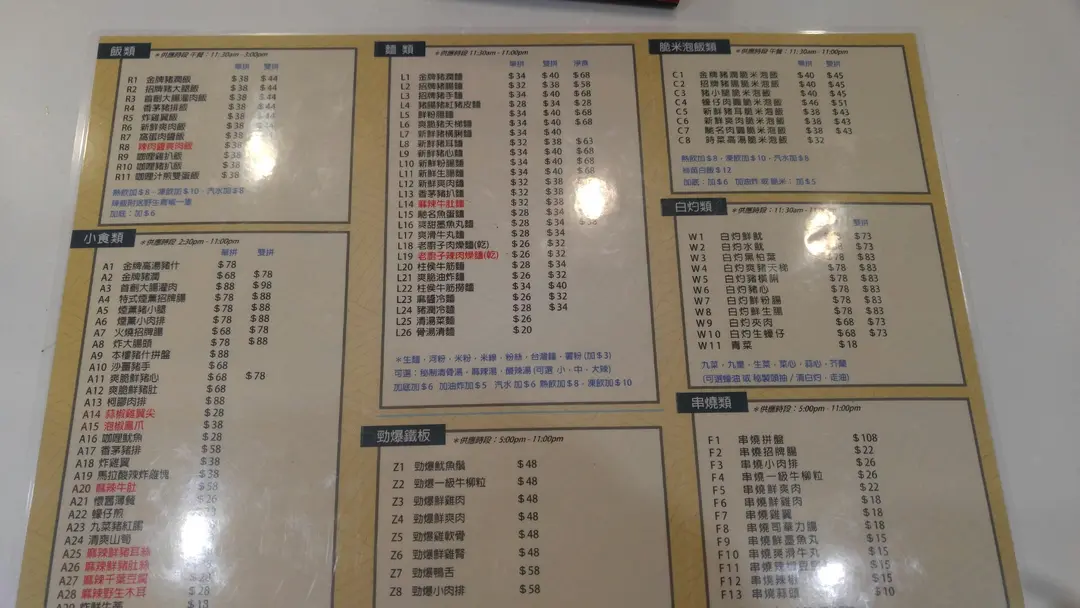 飯類 *供應時段 午餐：11:30am - 3:00pm
單拼 雙拼
R1 金牌豬潤飯 $38 $44
R2 招牌豬大腸飯 $38 $44
R3 首創大腸灌肉飯 $38 $44
R4 香茅豬排飯 $38 $44
R5 炸雞翼飯 $38
R6 新鮮爽肉飯 $38
R7 窩蛋肉醬飯 $38
R8 辣肉雞爽肉飯 $38
R9 咖喱雞扒飯 $38
R10 咖喱豬扒飯 $38
R11 咖喱汁煎雙蛋飯 $38
熱飲加$8，凍飲加$10，汽水加$8
加底：加$6
小食類 *供應時段 2:30pm - 11:00pm
單拼 雙拼
A1 金牌高湯豬什 $78
A2 金牌豬潤 $68 $78
A3 首創大腸灌肉 $88 $98
A4 特式煙薰招牌腸 $78 $88
A5 煙薰豬小腿 $78 $88
A6 煙薰小肉排 $78 $88
A7 火燒招牌腸 $68 $78
A8 炸大腸頭 $78 $88
A9 本樓豬什拼盤 $88
A10 沙薑豬手 $68
A11 爽脆鮮豬心 $68 $78
A12 爽脆鮮豬肚 $68
A13 柯膠肉排 $88
A14 蒜椒雞翼尖 $28
A15 泡椒鳳爪 $38
A16 咖喱魷魚 $28
A17 香茅豬排 $58
A18 炸雞翼 $38
A19 馬拉酸辣炸雞塊 $38
A20 麻辣牛肚 $58
A21 懷舊薄餐 $26
A22 蠔仔煎
A23 九菜豬紅腸
A24 清爽山筍
A25 麻辣鮮豬耳絲
A26 麻辣鮮豬肚絲
A27 麻辣千葉豆腐 $28
A28 麻辣野生木耳 $28
A29 炸鮮牛蒡 $18
麵類 *供應時段 11:30am - 11:00pm
單拼 雙拼 淨熹
L1 金牌豬潤麵 $34 $40 $68
L2 招牌豬腸麵 $32 $38 $58
L3 招牌豬手麵 $34 $40 $68
L4 豬腸豬紅豬皮麵 $28 $34 $28
L5 鮮粉腸麵 $34 $40 $68
L6 爽脆豬天梯麵 $34 $40 $68
L7 新鮮豬橫脷麵 $34 $40
L8 新鮮豬耳麵 $32 $38 $63
L9 新鮮豬心麵 $34 $40 $68
L10 新鮮粉腸麵 $34 $40 $68
L11 新鮮生腸麵 $34 $40 $68
L12 新鮮爽肉麵 $32 $38
L13 香茅豬扒麵 $32 $38
L14 麻辣牛肚麵 $32 $38
L15 馳名魚蛋麵 $28 $34
L16 爽甜墨魚丸麵 $28 $34
L17 爽滑牛丸麵 $28 $34
L18 老廚子肉燥麵(乾) $26 $32
L19 老廚子辣肉燥麵(乾) $26 $32
L20 柱侯牛筋麵 $28 $34
L21 爽脆油炸麵 $26 $32
L22 柱侯牛筋撈麵 $34 $40
L23 麻醬冷麵 $26 $32
L24 豬潤冷麵 $28 $34
L25 清湯菜麵 $26
L26 骨湯清麵 $20
＊生麵，河粉，米粉，米線，粉絲，台灣麵，薯粉(加$3)
可選：秘制清骨湯，麻辣湯，酸辣湯(可選 小、中、大辣)
加底加$6 加油炸加$5 汽水加$6 熱飲加$8，凍飲加$10
勁爆鐵板 *供應時段：5:00pm - 11:00pm
Z1 勁爆魷魚鬚 $48
Z2 勁爆一級牛柳粒 $48
Z3 勁爆鮮雞肉 $48
Z4 勁爆鮮爽肉 $48
Z5 勁爆雞軟骨 $48
Z6 勁爆鮮雞腎 $48
Z7 勁爆鴨舌 $58
Z8 勁爆小肉排 $58
脆米泡飯類 *供應時段 午餐：11:30am - 11:00pm
單拼 雙拼
C1 金牌豬潤脆米泡飯 $40 $45
C2 招牌豬腸脆米泡飯 $40 $45
C3 豬小腿脆米泡飯 $40 $45
C4 蠔仔肉圓脆米泡飯 $46 $51
C5 新鮮豬耳脆米泡飯 $38 $43
C6 新鮮爽肉脆米泡飯 $38 $43
C7 馳名肉圓脆米泡飯 $38 $43
C8 時菜高湯脆米泡飯 $32
熱飲加$8，凍飲加$10，汽水加$8
絲苗白飯$12
加底：加$6 加油炸或脆米：加$5
白灼類 *供應時段：11:30am - 11:00pm
單拼 雙拼
W1 白灼鮮魷 $73
W2 白灼水魷 $73
W3 白灼黑柏葉 $78 $83
W4 白灼爽豬天梯 $78 $83
W5 白灼豬橫脷 $78 $83
W6 白灼豬心 $78 $83
W7 白灼鮮粉腸 $78 $83
W8 白灼鮮生腸 $78 $83
W9 白灼夾肉 $68 $73
W10 白灼生蠔仔 $68 $73
W11 青菜 $18
九菜，九塱，生菜，菜心，蒜心，芥蘭
(可選蠔油 或 秘製頭抽 / 清白灼，走油)
串燒類 *供應時段：5:00pm - 11:00pm
F1 串燒拼盤 $108
F2 串燒招牌腸 $22
F3 串燒小肉排 $26
F4 串燒一級牛柳粒 $26
F5 串燒鮮爽肉 $22
F6 串燒鮮雞肉 $18
F7 串燒雞翼 $18
F8 串燒司華力腸 $18
F9 串燒鮮墨魚丸 $15
F10 串燒爽滑牛丸 $15
F11 串燒 $15
F12 串燒辣椒 $15
F13 串燒蒜頭 $10